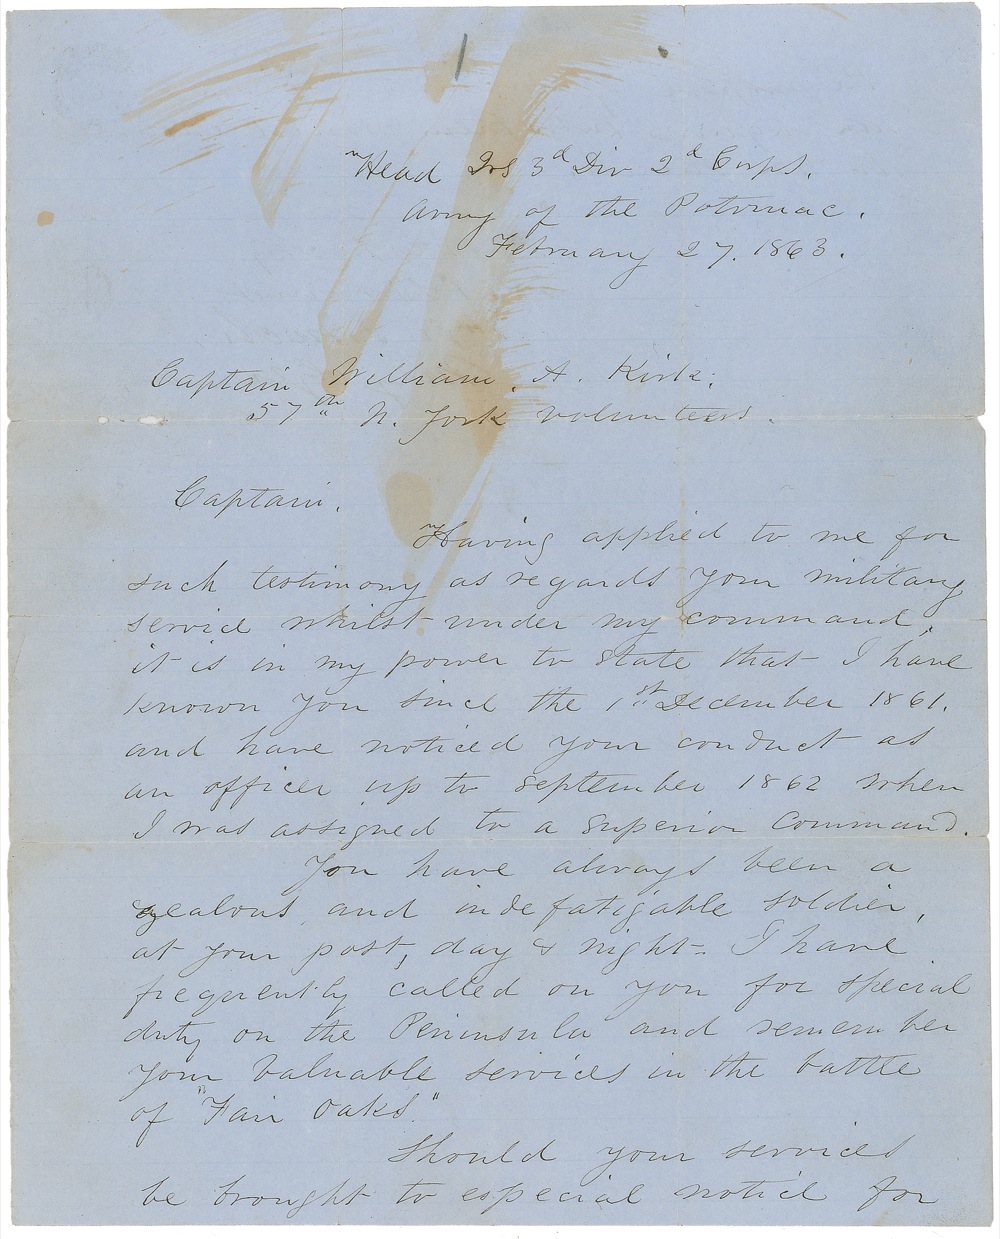 Head Qrs 3d Div 2d Corps.
Army of the Potomac.
February 27. 1863.
Captain William. A. Kirk.
57th N. York Volunteers.
Captain.
Having applied to me for
such testimony as regards your military
service whilst under my command,
it is in my power to state that I have
known you since the 1st December 1861.
and have noticed your conduct as
an officer up to September 1862 when
I was assigned to a superior command.
You have always been a
zealous and indefatigable soldier,
at your post, day & night- I have
frequently called on you for special
duty on the Peninsula and remember
your valuable services in the battle
of "Fair Oaks."
Should your services
be brought to especial notice for